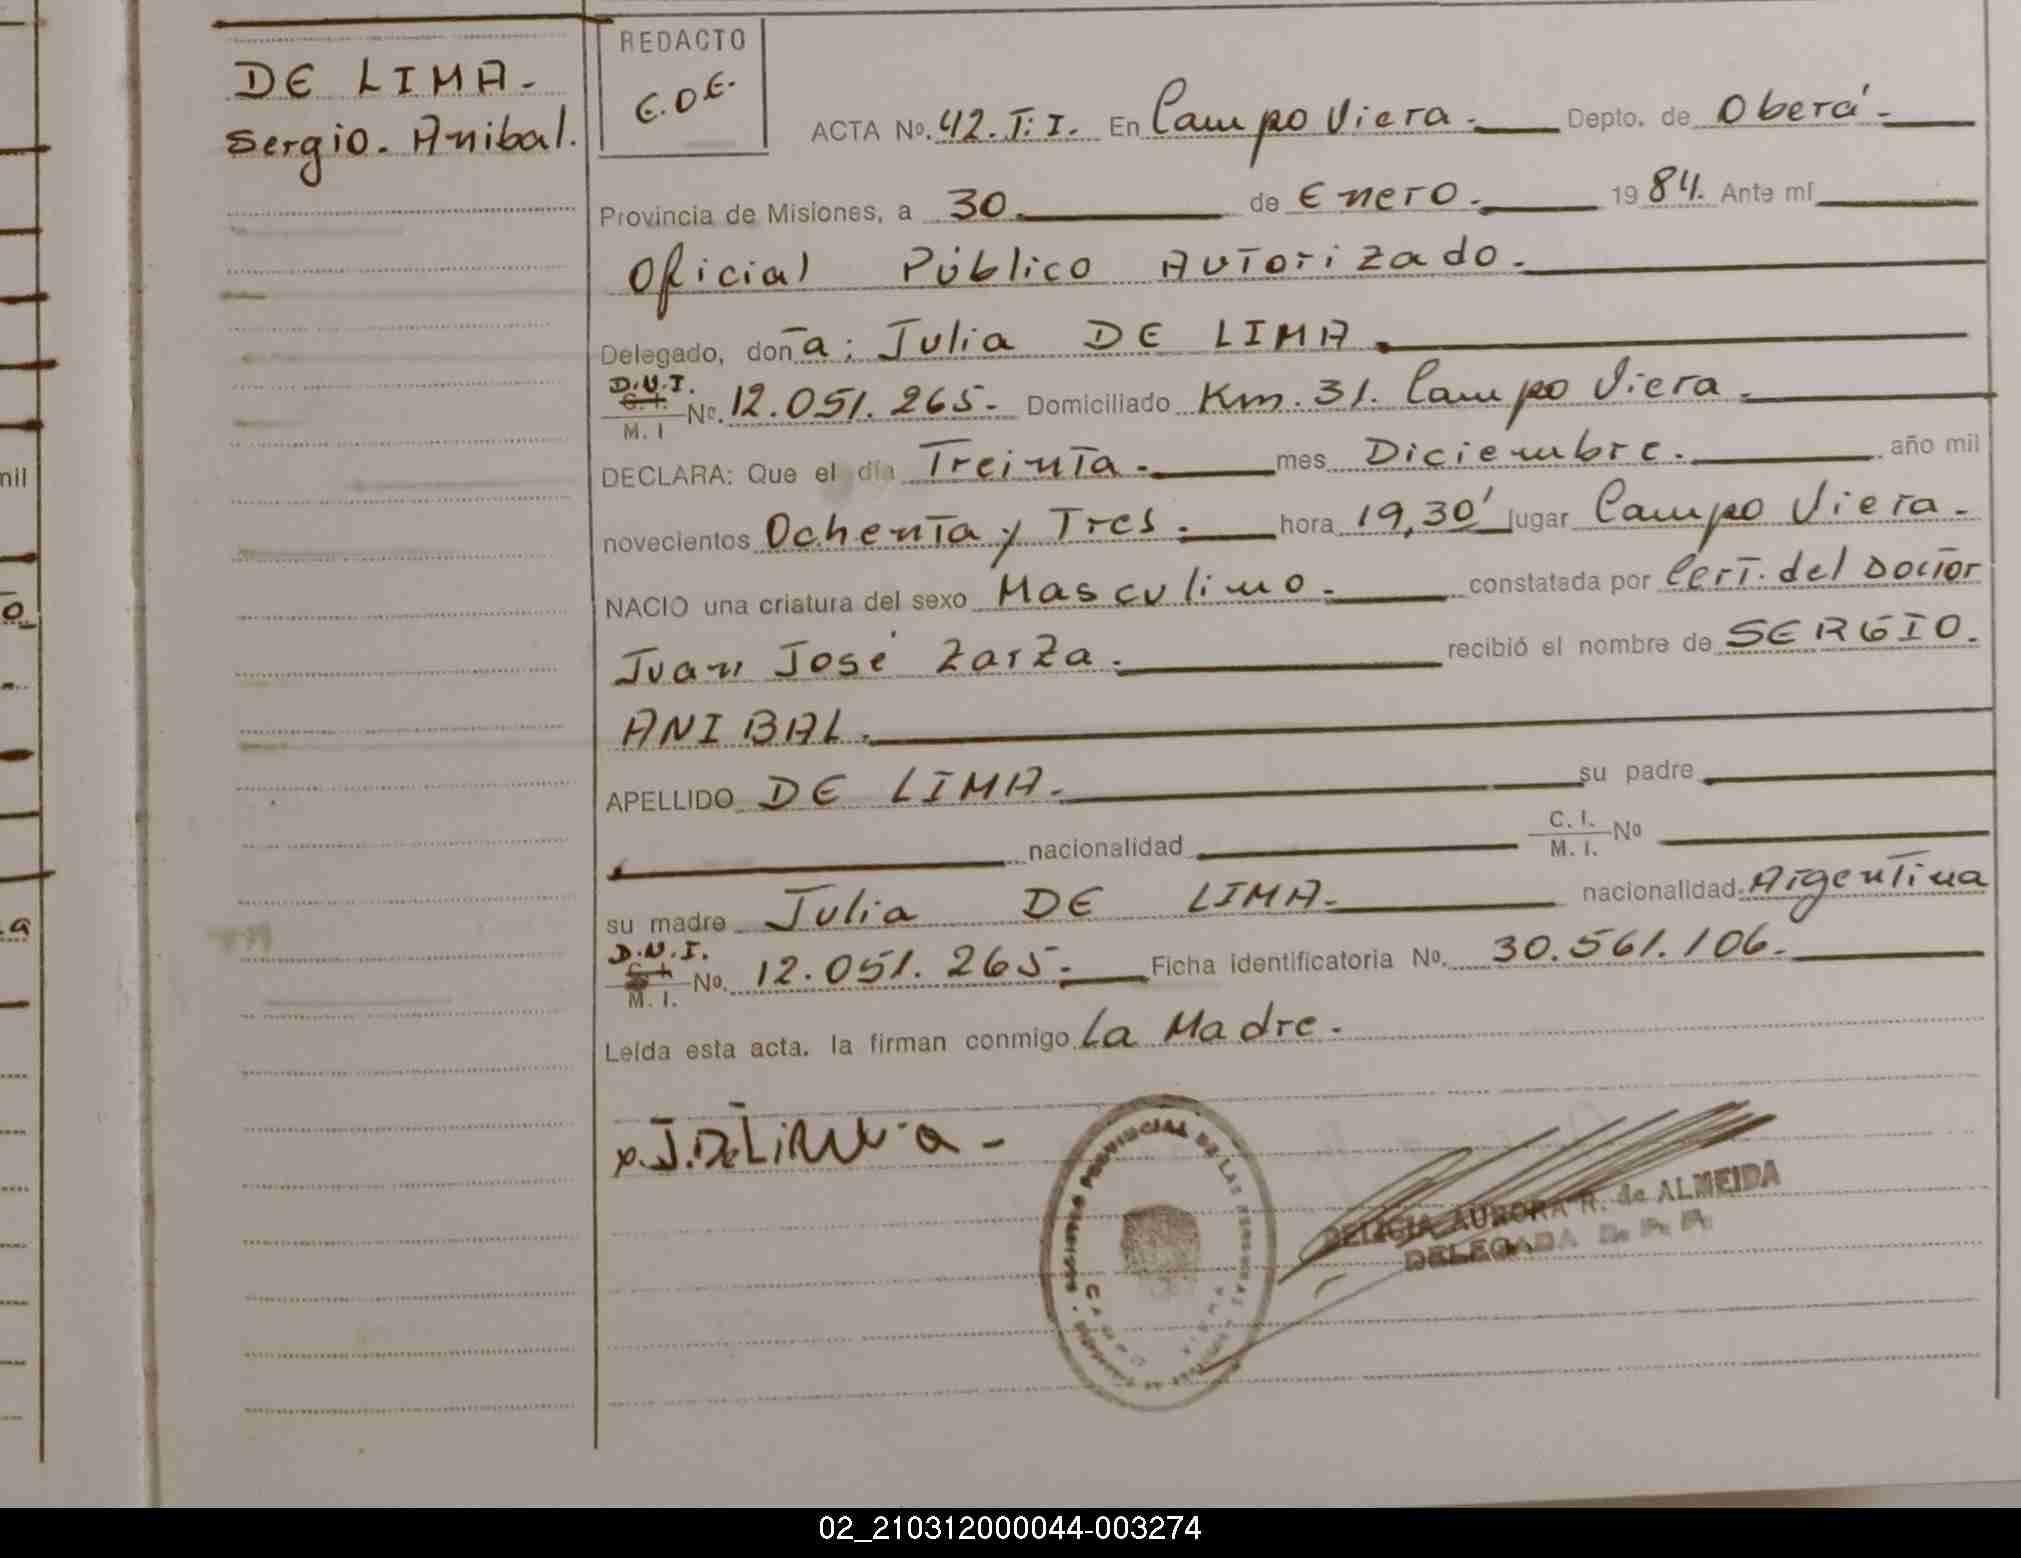 DE LIMA.
Sergio. Anibal.
REDACTO
E.D.E.
ACTA No. 42. T: I. En Campo Viera. Depto. de Oberá.
Provincia de Misiones, a 30 de Enero. 1984. Ante mí
Oficial Público Autorizado.
Delegado, doña: Julia DE LIMA
D.N.I.
C. I.
M. I No. 12.051.265. Domiciliado Km. 31. Campo Viera.
DECLARA: Que el día Treinta. mes Diciembre. año mil
novecientos Ochenta y Tres. hora 19,30' lugar Campo Viera.
NACIO una criatura del sexo Masculino. constatada por Cert. del Doctor
Juan José Zarza. recibió el nombre de SERGIO.
ANIBAL.
APELLIDO DE LIMA. su padre
nacionalidad C. I. M. I. No
su madre Julia DE LIMA. nacionalidad Argentina
D.N.I.
M. I. No. 12.051.265. Ficha identificatoria No. 30.561.106.
Leída esta acta. la firman conmigo La Madre.
J. De Lima
PROVINCIAL DE LAS PERSONAS
DELICIA AURORA R. de ALMEIDA
DELEGADA
mil
02_210312000044-003274